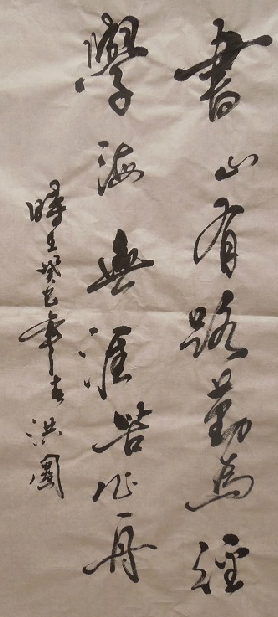 書山有路勤為徑
學海無涯苦作舟
時在癸巳年 洪圖